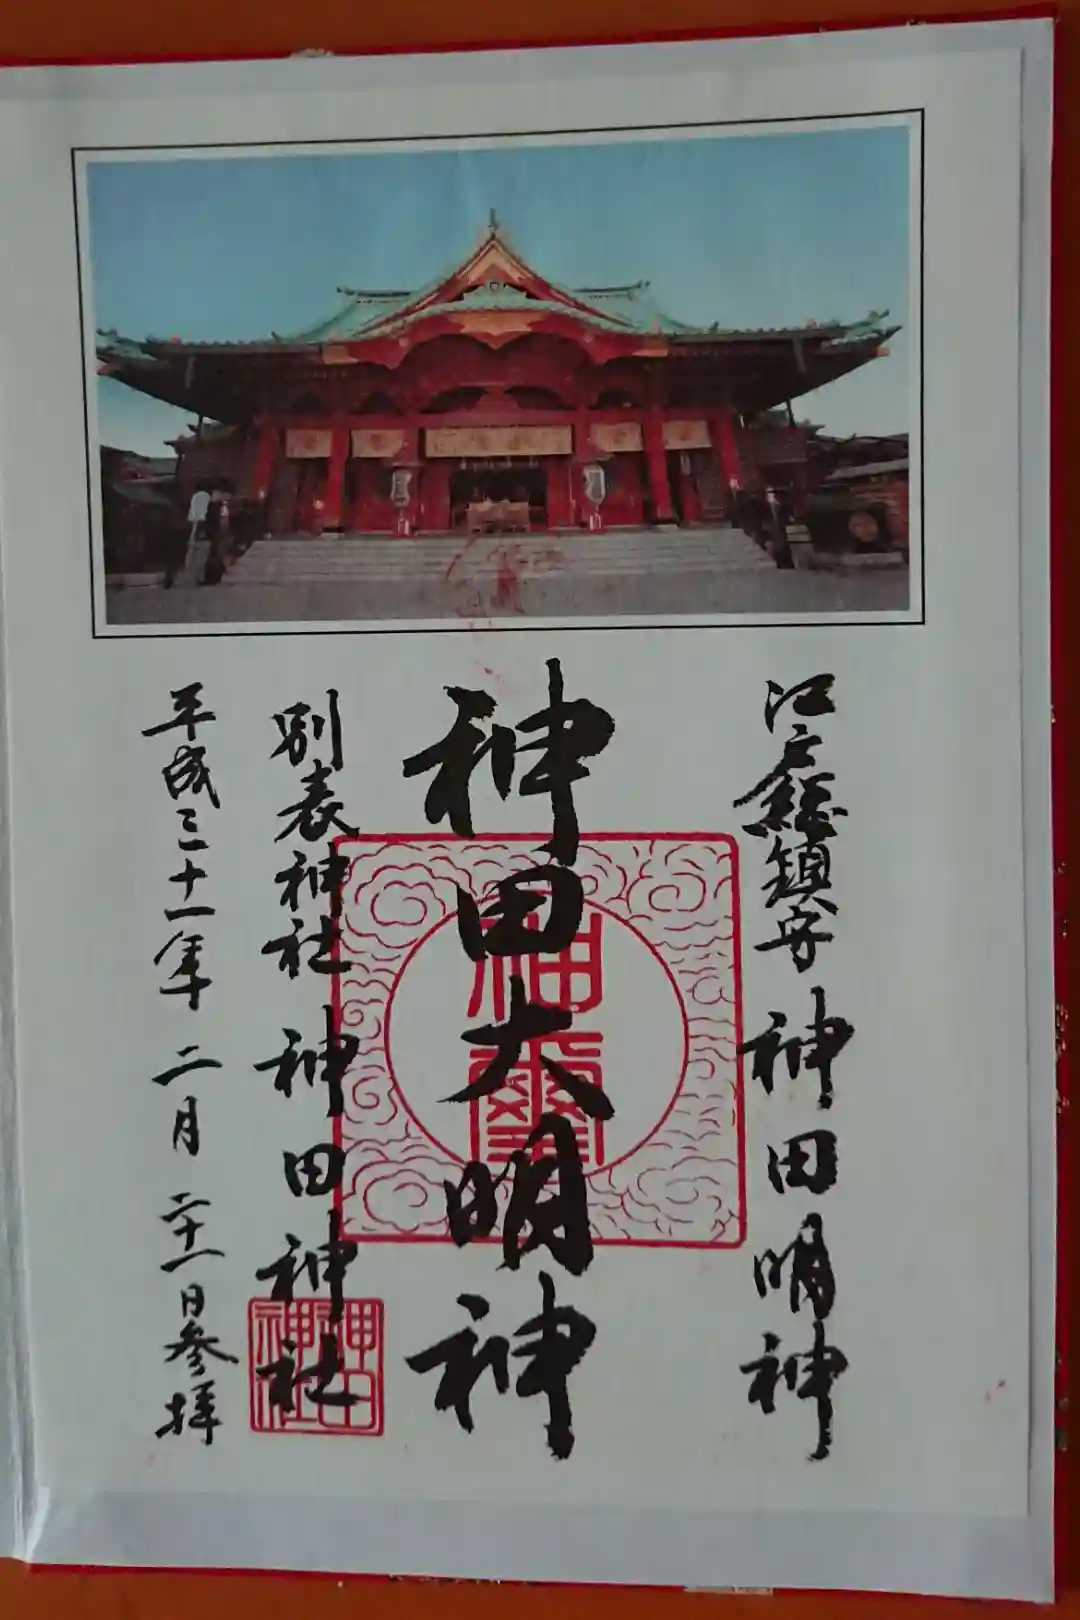 江戸総鎮守 神田明神
神田大明神
神璽
別表神社 神田神社
神田神社
平成三十一年 二月 二十一日参拝